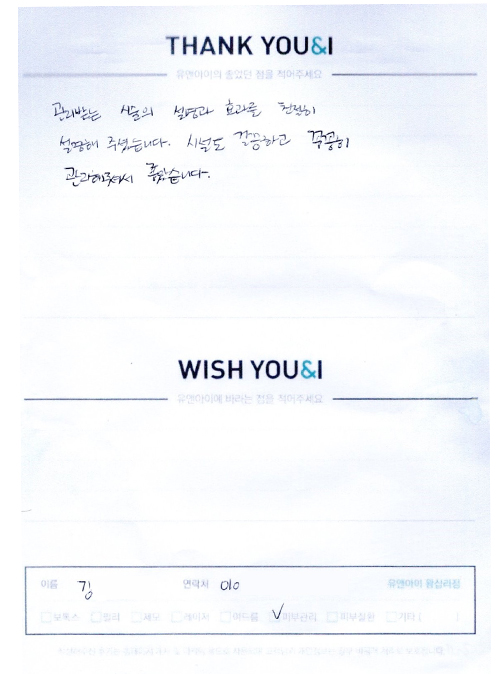 THANK YOU&I
유앤아이의 좋았던 점을 적어주세요
관리받는 시술의 설명과 효과를 친절히
설명해 주셨습니다. 시설도 깔끔하고 꼼꼼히
관리해주셔서 좋았습니다.
WISH YOU&I
유앤아이에 바라는 점을 적어주세요
이름 김 연락처 010 유앤아이 왕십리점
보톡스 필러 제모 레이저 여드름 피부관리 피부질환 기타 [ ]